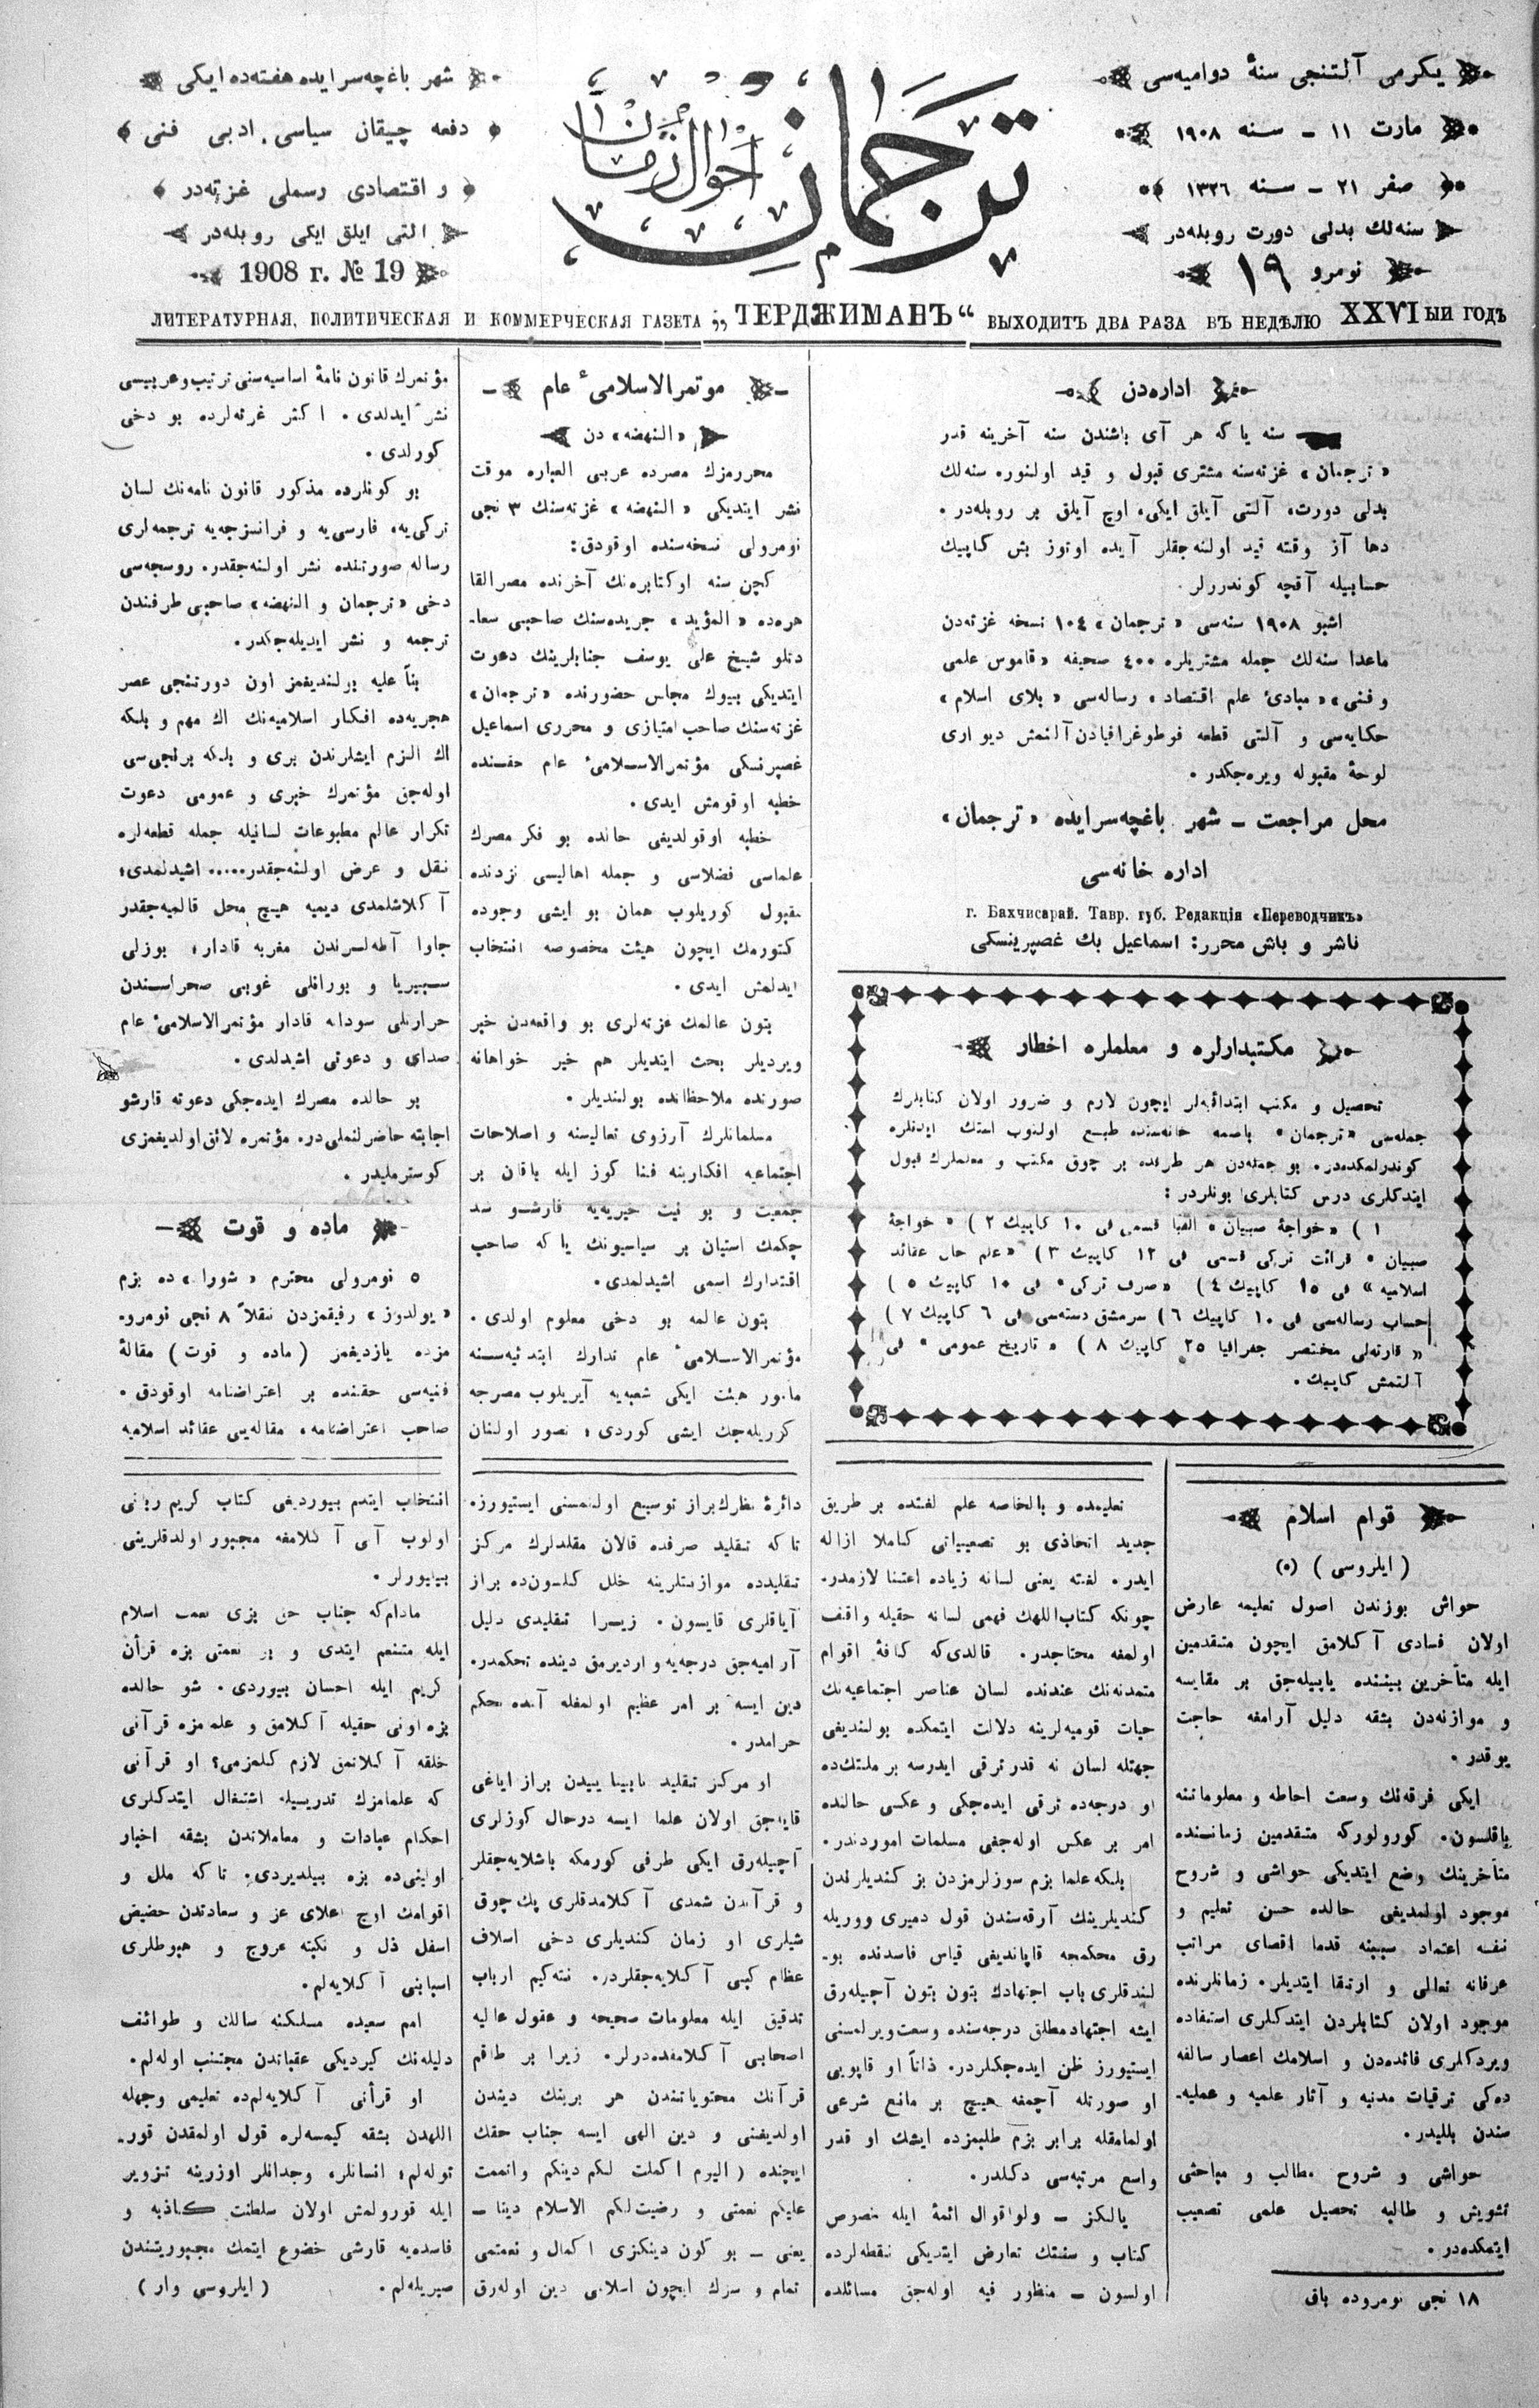 یکرمی آلتنجی سنهٔ دوامیه‌سی
مارت ۱۱ – سنه ۱۹۰۸
صفر ۲۱ – سنه ۱۳۲٦
سنه‌لك بدلی دورت روبله‌در
نومرو ۱۹
ترجمان
احوال زمان
شهر باغچه‌سرایده هفته‌ده ایکی
دفعه چیقان سیاسی، ادبی فنی
و اقتصادی رسملی غزته‌در
التی ایلق ایکی روبله‌در
1908 г. № 19
ЛИТЕРАТУРНАЯ, ПОЛИТИЧЕСКАЯ И КОММЕРЧЕСКАЯ ГАЗЕТА „ТЕРДЖИМАНЪ“ ВЫХОДИТЪ ДВА РАЗА ВЪ НЕДѢЛЮ XXVIый ГОДЪ
اداره‌دن
سنه یا که هر آی باشندن سنه آخرینه قدر
« ترجمان » غزته‌سنه مشتری قبول و قید اولنور. سنه‌لك
بدلی دورت، آلتی آیلق ایکی، اوچ آیلق بر روبله‌در.
دها آز وقته قید اولنه‌جقلر آیده اوتوز بش کاپیك
حسابیله آقچه کوندررلر.
اشبو ۱۹۰۸ سنه‌سی « ترجمان » ۱۰٤ نسخه غزته‌دن
ماعدا سنه‌لك جمله مشتریلره ٤۰۰ صحیفه « قاموس علمی
و فنی » « مبادیٔ علم اقتصاد » رساله‌سی « بلای اسلام »
حکایه‌سی و آلتی قطعه فوطوغرافیادن آلنمش دیواری
لوحهٔ مقبوله ویره‌جکدر.
محل مراجعت – شهر باغچه‌سرایده « ترجمان »
اداره خانه‌سی
г. Бахчисарай. Тавр. губ. Редакція «Переводчикъ»
ناشر و باش محرر: اسماعیل بك غصپرینسکی
مکتبدارلره و معلملره اخطار
تحصیل و مکتب ابتدائیه‌لر ایچون لازم و ضرور اولان کتابلرك
جمله‌سی « ترجمان » باصمه خانه‌سنده طبع اولنوب استك ایدنلره
کوندرلمکده‌در. بو جمله‌دن هر طرفده بر چوق مکتب و معلملرك قبول
ایتدکلری درس کتابلری بونلردر:
۱ ) « خواجهٔ صبیان » الفبا قسمی فی ۱۰ کاپیك ۲ ) « خواجهٔ
صبیان » قرائت ترکی قسمی فی ۱۲ کاپیك ۳ ) « علم حال عقائد
اسلامیه » فی ۱٥ کاپیك ٤ ) « صرف ترکی » فی ۱۰ کاپیك ٥ )
حساب رساله‌سی فی ۱۰ کاپیك ٦ ) سرمشق دسته‌سی فی ٦ کاپیك ۷ )
« قارته‌لی مختصر جغرافیا ۲٥ کاپیك ۸ ) « تاریخ عمومی » فی
آلتمش کاپیك.
موتمر الاسلامیٔ عام
« النهضه » دن
محررمزك مصرده عربی العباره موقت
نشر ایتدیکی « النهضه » غزته‌سنك ۳ نجی
نومرولی نسخه‌سنده اوقودق:
کچن سنه اوکتابره‌نك آخرنده مصر القا
هره‌ده « المؤید » جریده‌سنك صاحبی سعا-
دتلو شیخ علی یوسف جنابلرینك دعوت
ایتدیکی بیوك مجلس حضورنده « ترجمان »
غزته‌سنك صاحب امتیازی و محرری اسماعیل
غصپرنسکی مؤتمر الاسلامیٔ عام حقنده
خطبه اوقومش ایدی.
خطبه اوقولدیغی حالده بو فکر مصرك
علماسی فضلاسی و جمله اهالیسی نزدنده
مقبول کوریلوب همان بو ایشی وجوده
کتورمك ایچون هیئت مخصوصه انتخاب
ایدلمش ایدی.
بتون عالمك غزته‌لری بو واقعه‌دن خبر
ویردیلر بحث ایتدیلر هم خیر خواهانه
صورتده ملاحظاتده بولندیلر.
مسلمانلرك آرزوی تعالیسنه و اصلاحات
اجتماعیه افکارینه فنا کوز ایله باقان بر
جمعیت و بو نیت خیریه‌یه قارشو سد
چکمك استیان بر سیاسیونك یا که صاحب
اقتدارك اسمی اشیدلمدی.
بتون عالمه بو دخی معلوم اولدی.
مؤتمر الاسلامیٔ عام تدارك ابتدائیه‌سنه
مأمور هیئت ایکی شعبه‌یه آیریلوب مصرجه
کوریله‌جك ایشی کوردی؛ تصور اولنان
مؤتمرك قانون نامهٔ اساسیه‌سنی ترتیب و عربیسی
نشر ایدلدی. اکثر غزته‌لرده بو دخی
کورلدی.
بو کونلرده مذکور قانون نامه‌نك لسان
ترکی‌یه، فارسی‌یه و فرانسزجه‌یه ترجمه‌لری
رساله صورتنده نشر اولنه‌جقدر. روسجه‌سی
دخی « ترجمان و النهضه » صاحبی طرفندن
ترجمه و نشر ایدیله‌جکدر.
بناً علیه بولندیغمز اون دورتنجی عصر
هجریه‌ده افکار اسلامیه‌نك اك مهم و بلکه
اك الزم ایشلرندن بری و بلکه برنجی‌سی
اوله‌جق مؤتمرك خبری و عمومی دعوت
تکرار عالم مطبوعات لسانیله جمله قطعه‌لره
نقل و عرض اولنه‌جقدر..... اشیدلمدی؛
آکلاشلمدی دیمیه هیچ محل قالمیه‌جقدر
جاوا آطه‌لرندن مغربه قادار؛ بوزلی
سیبیریا و بورانلی غوبی صحراسندن
حرارتلی سودانه قادار مؤتمر الاسلامیٔ عام
صدای و دعوتی اشیدلدی.
بر حالده مصرك ایده‌جکی دعوته قارشو
اجابته حاضرلنملی‌در. مؤتمره لائق اولدیغمزی
کوسترملیدر.
ماده و قوت
٥ نومرولی محترم « شورا » ده بزم
« یولدوز » رفیقمزدن نقلاً ۸ نجی نومرو-
مزده یازدیغمز ( ماده و قوت ) مقالهٔ
فنیه‌سی حقنده بر اعتراضنامه اوقودق.
صاحب اعتراضنامه، مقاله‌یی عقائد اسلامیه
قوام اسلام
( ایلروسی ) (٥)
حواش یوزندن اصول تعلیمه عارض
اولان فسادی آکلامق ایچون متقدمین
ایله متأخرین بیننده یاپیله‌جق بر مقایسه
و موازنه‌دن بشقه دلیل آرامغه حاجت
یوقدر.
ایکی فرقه‌نك وسعت احاطه و معلوماتنه
باقلسون. کورولورکه متقدمین زماننده
متأخرینك وضع ایتدیکی حواشی و شروح
موجود اولمدیغی حالده حسن تعلیم و
نفسه اعتماد سببنه قدما اقصای مراتب
عرفانه تعالی و ارتقا ایتدیلر. زمانلرنده
موجود اولان کتابلردن ایتدکلری استفاده
ویردکلری فائده‌دن و اسلامك اعصار سالفه
ده‌کی ترقیات مدنیه و آثار علمیه و عملیه-
سندن بللیدر.
حواشی و شروح مطالب و مباحثی
تشویش و طالبه تحصیل علمی تصعیب
ایتمکده‌در.
۱۸ نجی نومروده باق
تعلیمده و بالخاصه علم لغتده بر طریق
جدید اتخاذی بو تصعیباتی کاملا ازاله
ایدر. لغته یعنی لسانه زیاده اعتنا لازمدر.
چونکه کتاب اللهك فهمی لسانه حقیله واقف
اولمغه محتاجدر. قالدی‌که کافهٔ اقوام
متمدنه‌نك عندنده لسان عناصر اجتماعیه‌نك
حیات قومیه‌لرینه دلالت ایتمکده بولندیغی
جهتله لسان نه قدر ترقی ایدرسه بر ملتك‌ده
او درجه‌ده ترقی ایده‌جکی و عکسی حالنده
امر بر عکس اوله‌جغی مسلمات اموردندر.
بلکه علما بزم سوزلرمزدن بز کندیلرندن
کندیلرینك آرقه‌سندن قول دمیری ووریله
رق محکمجه قاپاندیغی قیاس فاسدنده بو-
لندقلری باب اجتهادك بتون بتون آچیله‌رق
ایشه اجتهاد مطلق درجه‌سنده وسعت ویرلمسنی
ایستیورز ظن ایده‌جکلردر. ذاتاً او قاپویی
او صورتله آچمغه هیچ بر مانع شرعی
اولمامقله برابر بزم طلبمزده ایشك او قدر
واسع مرتبه‌سی دکلدر.
یالکز – ولو اقوال ائمهٔ ایله منصوص
کتاب و سنتك تعارض ایتدیکی نقطه‌لرده
اولسون – منظور فیه اوله‌جق مسائلده
دائرهٔ نظرك براز توسیع اولنمسنی ایستیورز.
تا که تقلید صرفده قالان مقلدلرك مرکز
تقلیدده موازنتلرینه خلل کلسون‌ده براز
آیاقلری قایسون. زیرا تقلیدی دلیل
آرامیه‌جق درجه‌یه واردیرمق دینده تحکمدر.
دین ایسه بر امر عظیم اولمغله آنده تحکم
حرامدر.
او مرکز تقلید نابینا ییدن براز ایاغی
قایه‌جق اولان علما ایسه درحال کوزلری
آچیله‌رق ایکی طرفی کورمکه باشلایه‌جقلر
و قرآندن شمدی آکلامدقلری پك چوق
شیلری او زمان کندیلری دخی اسلاف
عظام کبی آکلایه‌جقلردر. نته‌کیم ارباب
تدقیق ایله معلومات صحیحه و عقول عالیه
اصحابی آکلامقده‌درلر. زیرا بر طاقم
قرآنك محتویاتندن هر برینك دیندن
اولدیغنی و دین الهی ایسه جناب حقك
ایچنده ( الیوم اکملت لکم دینکم واتممت
علیکم نعمتی و رضیت لکم الاسلام دینا –
یعنی – بو کون دینکزی اکمال و نعمتمی
تمام و سزك ایچون اسلامی دین اوله‌رق
انتخاب ایتدم بیوردیغی کتاب کریم ربانی
اولوب آنی آکلامغه مجبور اولدقلرینی
بیلیورلر.
مادام‌که جناب حق بزی نعمت اسلام
ایله متنعم ایتدی و بو نعمتی بزه قرآن
کریم ایله احسان بیوردی. شو حالده
بزه اونی حقیله آکلامق و علمامزه قرآنی
خلقه آکلاتمق لازم کلمزمی؟ او قرآنی
که علمامزك تدریسیله اشتغال ایتدکلری
احکام عبادات و معاملاتدن بشقه اخبار
اولینی‌ده بزه بیلدیردی. تا که ملل و
اقوامك اوج اعلای عز و سعادتدن حضیض
اسفل ذل و نکبته عروج و هبوطلری
اسبابنی آکلایه‌لم.
امم سعیده مسلکنه سالك و طوائف
ذلیله‌نك کیردیکی عقباتدن مجتنب اوله‌لم.
او قرأنی آکلایه‌لم‌ده تعلیمی وجهله
اللهدن بشقه کیمسه‌لره قول اولمقدن قور-
توله‌لم؛ انسانلر، وجدانلر اوزرینه تزویر
ایله قورولمش اولان سلطنت کاذبه و
فاسده‌یه قارشی خضوع ایتمك مجبوریتندن
صیریله‌لم. ( ایلروسی وار )